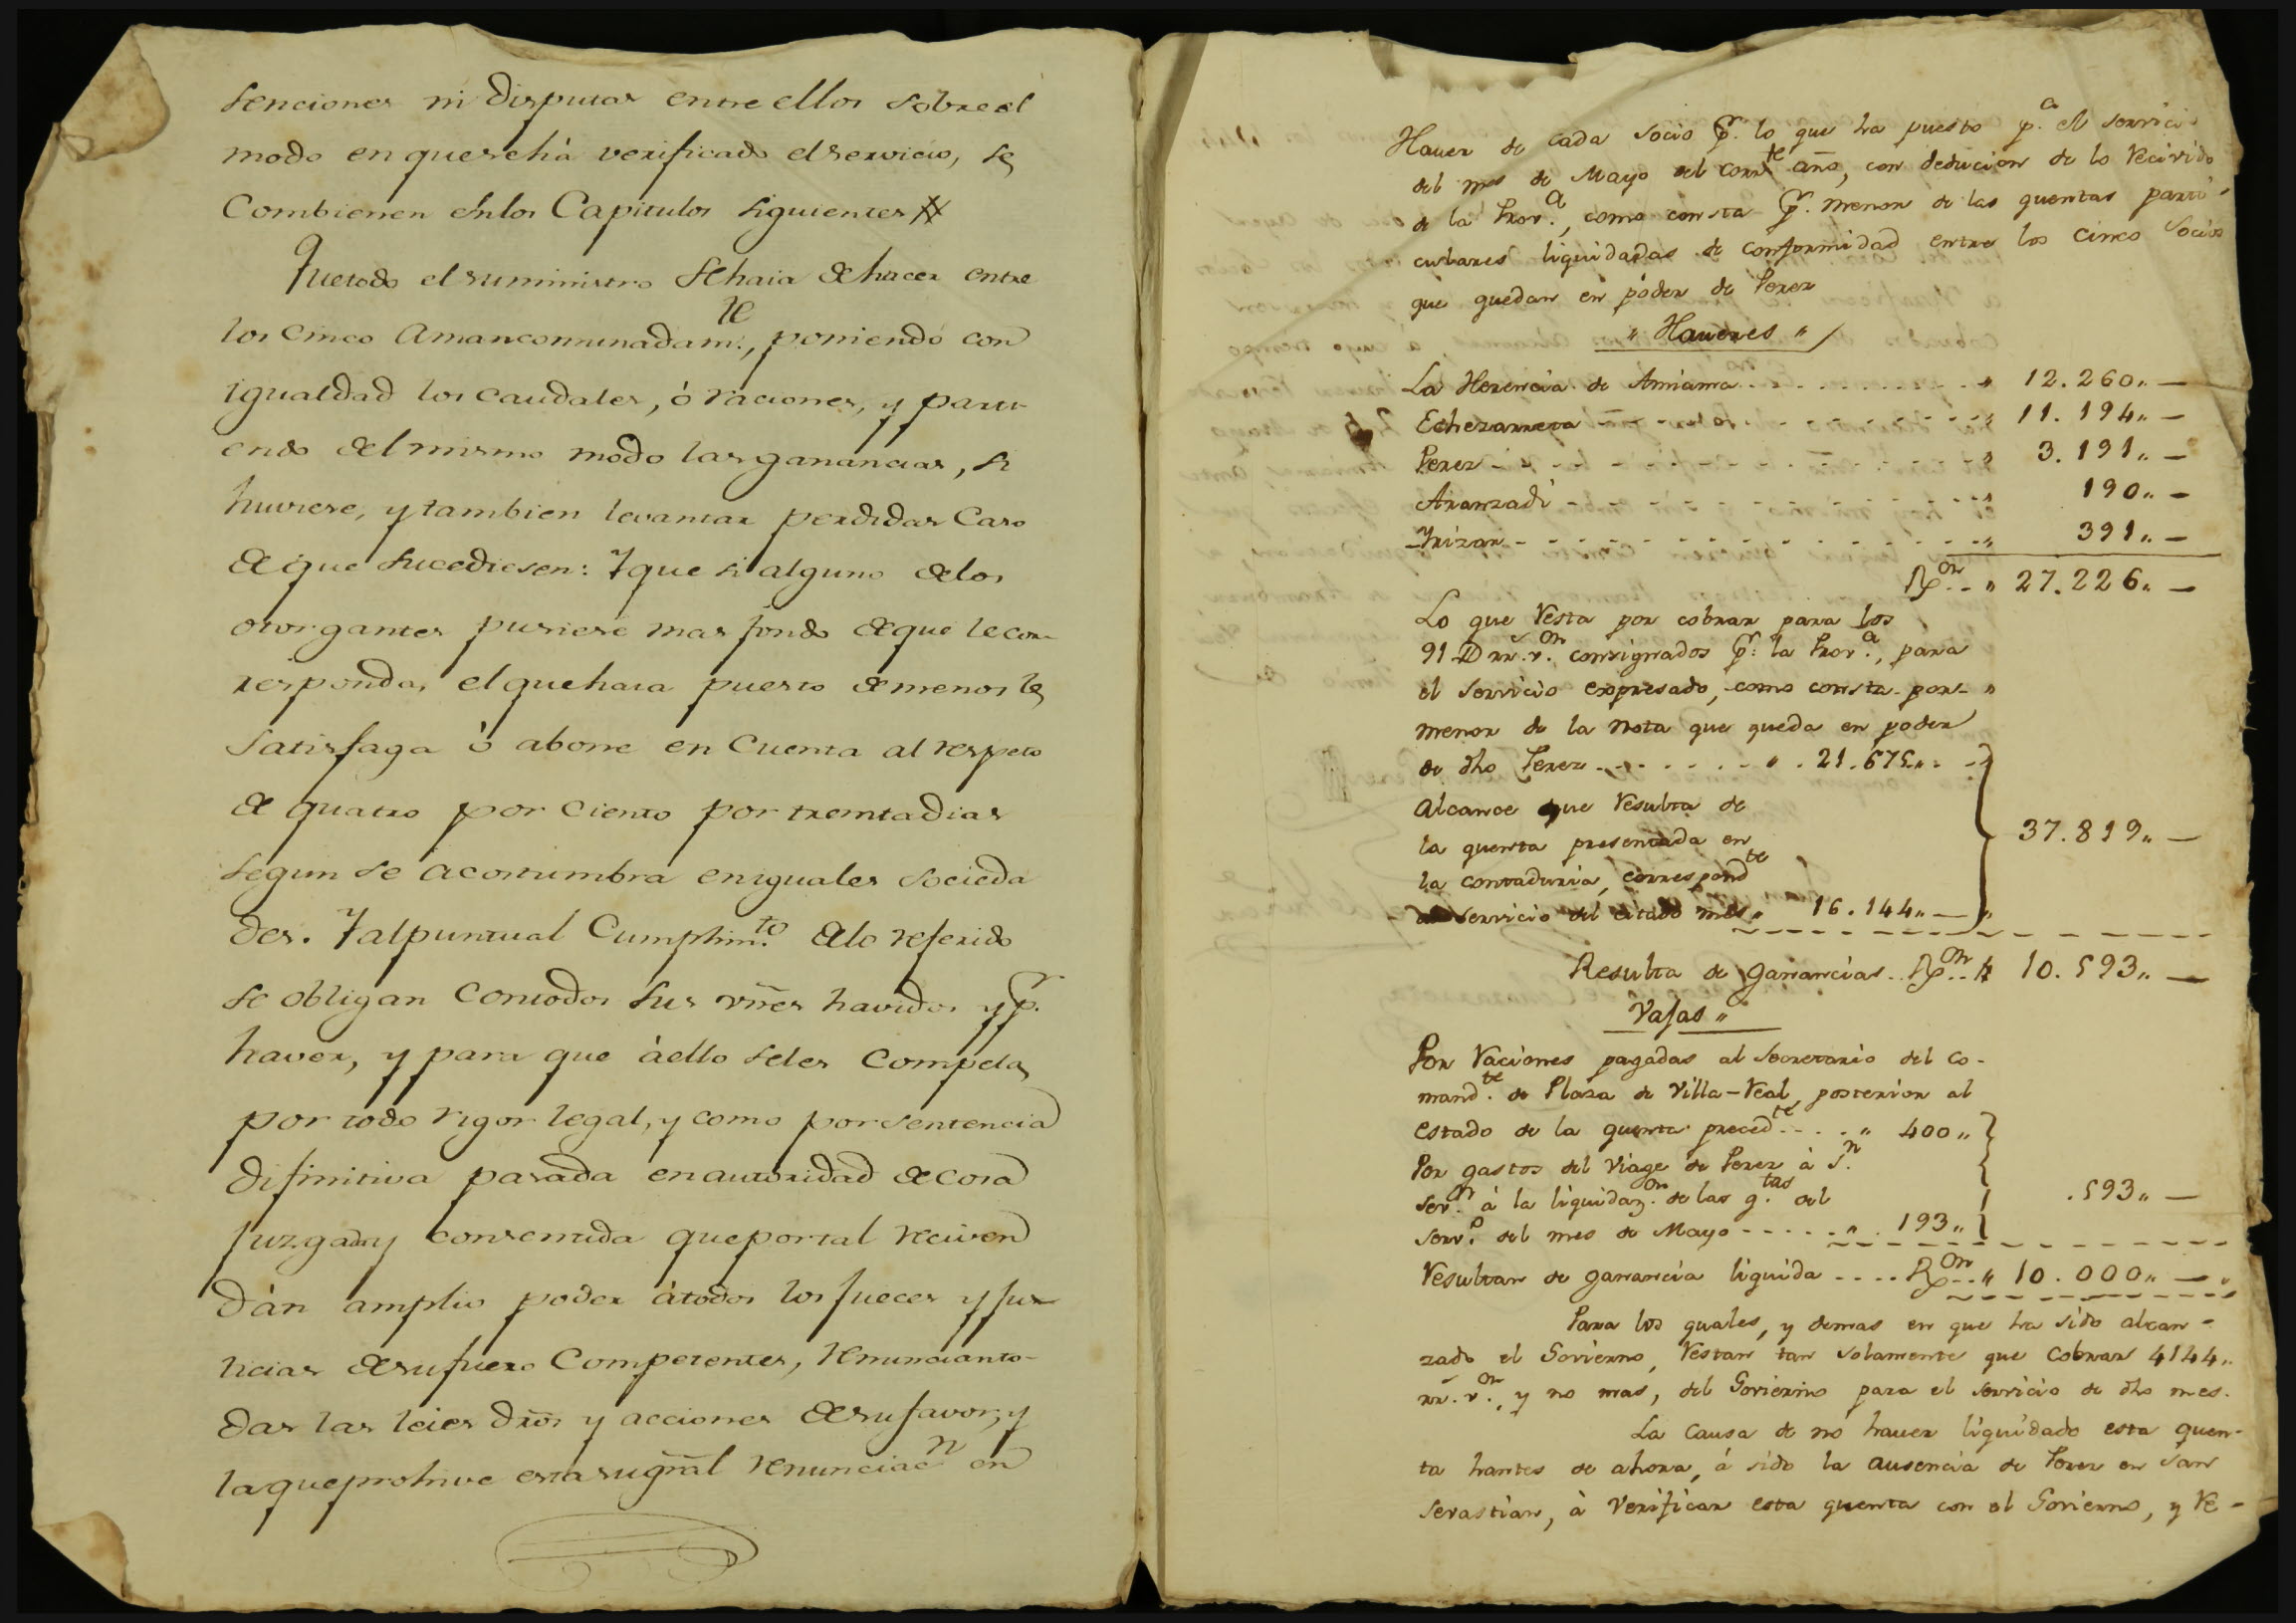 senciones ni disputas entre ellos sobre el
modo en que se há verificado el servicio, se
Combienen en los Capitulos siguientes
Que todo el suministro se haia de hacer entre
los cinco Amancomunadam.te, poniendo con
igualdad los caudales, ó raciones, y parti-
endo del mismo modo las ganancias, si
huviese, y tambien levantar perdidas Caso
de que sucediesen: Y que si alguno de los
otorgantes pusiere mas fondo de que le cor-
responda, el que haia puesto de menos le
satisfaga ó abone en Cuenta al respeto
de quatro por Ciento por treinta dias
segun se acostumbra en iguales socieda
des. Y al puntual Cumplim.to de lo referido
se obligan con todos sus vñes havidos y p.r
haver, y para que á ello se les Compela
por todo rigor legal, y como por sentencia
difinitiva pasada en autoridad de cosa
Juzgada y consentida que por tal reciven
dán amplio poder á todos los Jueces y Jus
ticias de su fuero Competentes, renuncian to-
das las leies dr̃os y acciones de su favor, y
la que prohive esta su gr̃al renunciac.n en
Haver de cada socio p.r lo que ha puesto p.a el servicio
del mes de Mayo del corr.te año, con deducion de lo recivido
de la Prov.a, como consta p.r menor de las quentas parti-
culares liquidadas de conformidad entre los cinco socios
que quedan en póder de Perez
" Haveres "
La Herencia de Amiama " 12.260 " —
Echezarreta " 11.194 " —
Perez " 3.191 " —
Aranzadi " 190 " —
Yrizar " 391 " —
R.on " 27.226 " —
Lo que resta por cobrar para los
91 D rr.s v.on consignados p.r la Prov.a, para
el servicio expresado, como consta por-
menor de la nota que queda en poder
de dho Perez " 21.675 "
Alcance que resulta de
la quenta presentada en
la contaduria, correspond.te
al servicio del citado mes " 16.144 " — 37.819 " —
Resulta de ganancias R.on " 10.593 " —
Vajas "
Por raciones pagadas al secretario del Co-
mand.te de Plaza de Villa-real, posterior al
estado de la quenta preced.te " 400 "
Por gastos del viage de Perez à S.n
Sev.n à la liquidaz.on de las q.tas del
serv.o del mes de Mayo " 193 " .593 " —
Resultan de ganancia liquida R.on " 10.000 " —
Para los quales, y demas en que ha sido alcan-
zado el Govierno, restan tan solamente que cobrar 4144 "
rr.s v.on, y no mas, del Govierno para el servicio de dho mes.
La causa de no haver liquidado esta quen-
ta hantes de ahora, á sido la ausencia de Perez en San
Sevastian, à verificar esta quenta con el Govierno, y re-